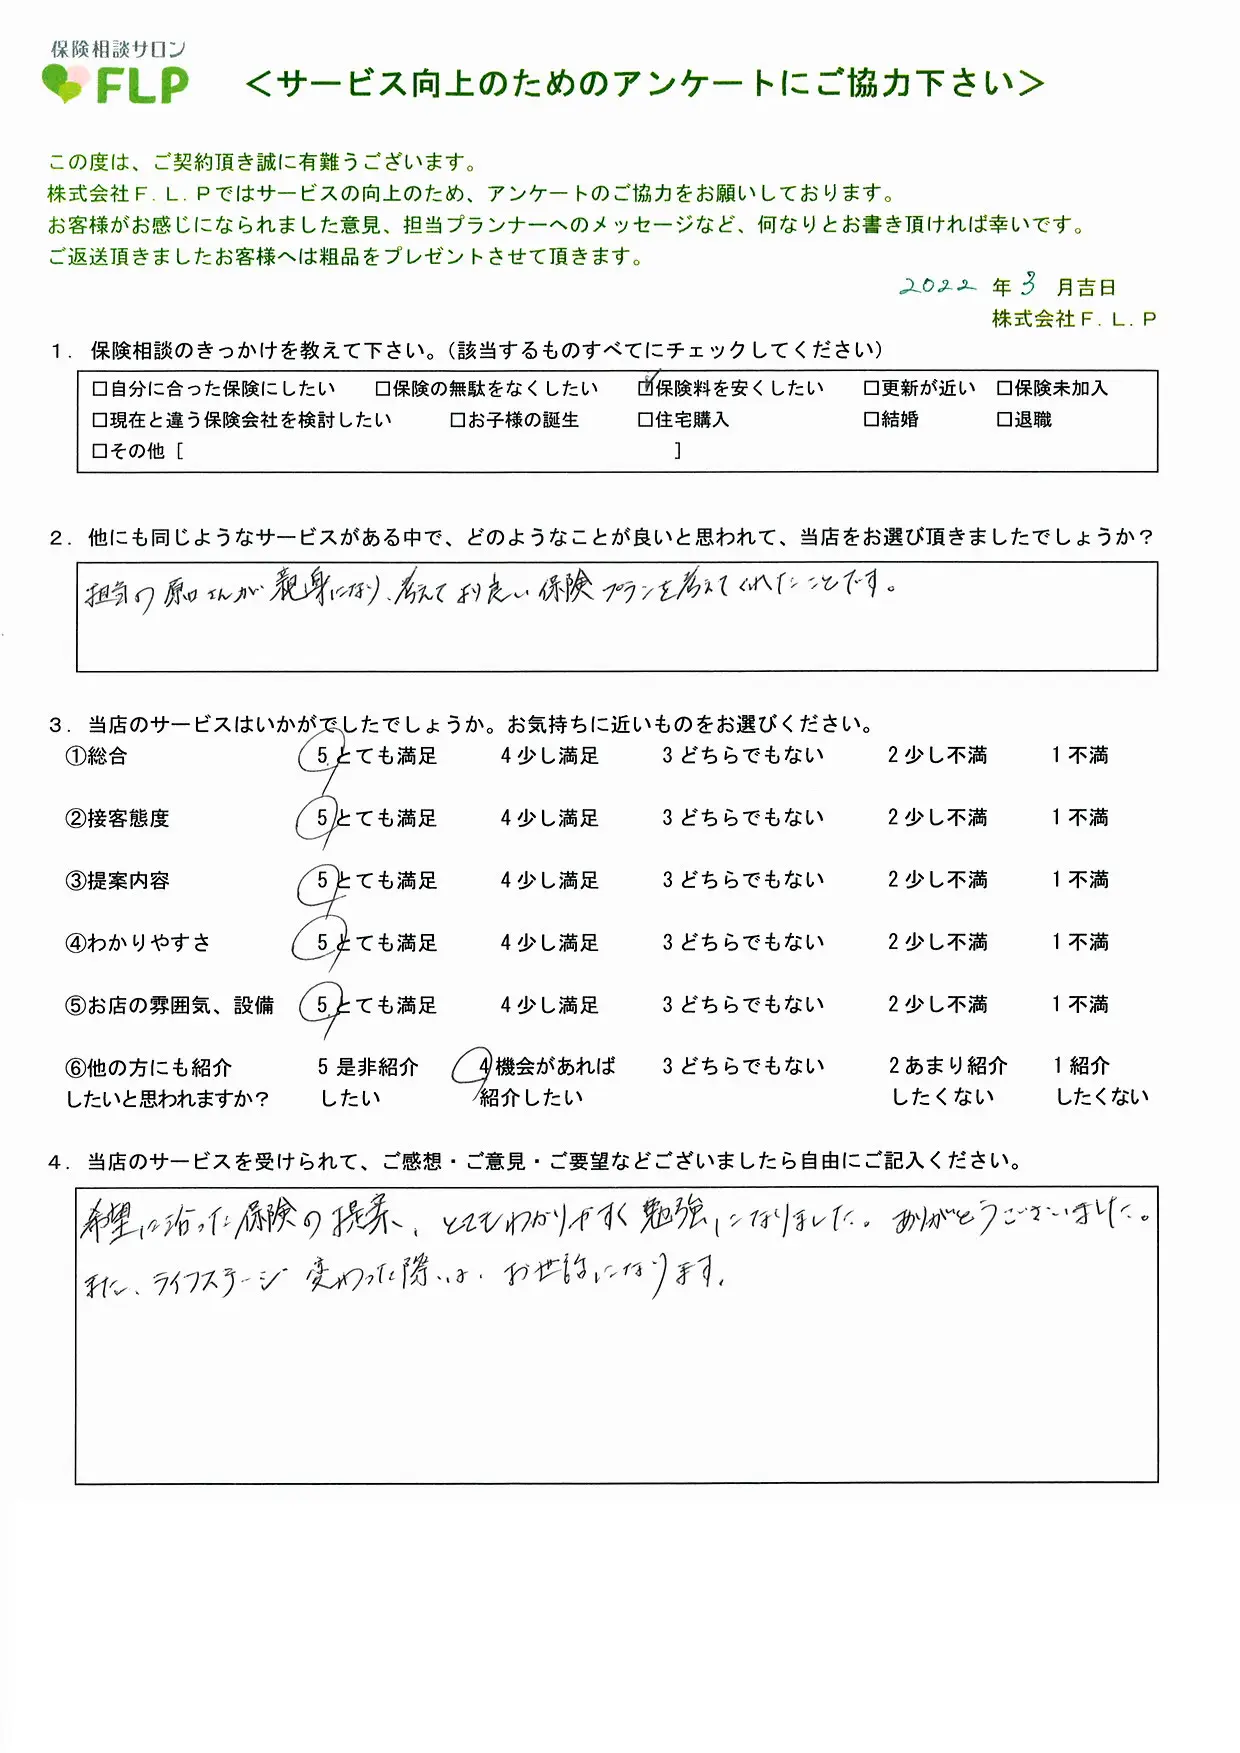 保険相談サロン
FLP
＜サービス向上のためのアンケートにご協力下さい＞
この度は、ご契約頂き誠に有難うございます。
株式会社Ｆ．Ｌ．Ｐではサービスの向上のため、アンケートのご協力をお願いしております。
お客様がお感じになられました意見、担当プランナーへのメッセージなど、何なりとお書き頂ければ幸いです。
ご返送頂きましたお客様へは粗品をプレゼントさせて頂きます。
2022 年 3 月吉日
株式会社Ｆ．Ｌ．Ｐ
１．保険相談のきっかけを教えて下さい。（該当するものすべてにチェックしてください）
□自分に合った保険にしたい □保険の無駄をなくしたい ☑保険料を安くしたい □更新が近い □保険未加入
□現在と違う保険会社を検討したい □お子様の誕生 □住宅購入 □結婚 □退職
□その他［ ］
２．他にも同じようなサービスがある中で、どのようなことが良いと思われて、当店をお選び頂きましたでしょうか？
担当の原口さんが親身になり、考えてより良い保険プランを考えてくれたことです。
３．当店のサービスはいかがでしたでしょうか。お気持ちに近いものをお選びください。
①総合 5.とても満足 4 少し満足 3 どちらでもない 2 少し不満 1 不満
②接客態度 5 とても満足 4 少し満足 3 どちらでもない 2 少し不満 1 不満
③提案内容 5 とても満足 4 少し満足 3 どちらでもない 2 少し不満 1 不満
④わかりやすさ 5.とても満足 4 少し満足 3 どちらでもない 2 少し不満 1 不満
⑤お店の雰囲気、設備 5.とても満足 4 少し満足 3 どちらでもない 2 少し不満 1 不満
⑥他の方にも紹介 5 是非紹介 4 機会があれば 3 どちらでもない 2 あまり紹介 1 紹介
したいと思われますか？ したい 紹介したい したくない したくない
４．当店のサービスを受けられて、ご感想・ご意見・ご要望などございましたら自由にご記入ください。
希望に沿った保険の提案、とてもわかりやすく勉強になりました。ありがとうございました。
また、ライフステージ変わった際は、お世話になります。